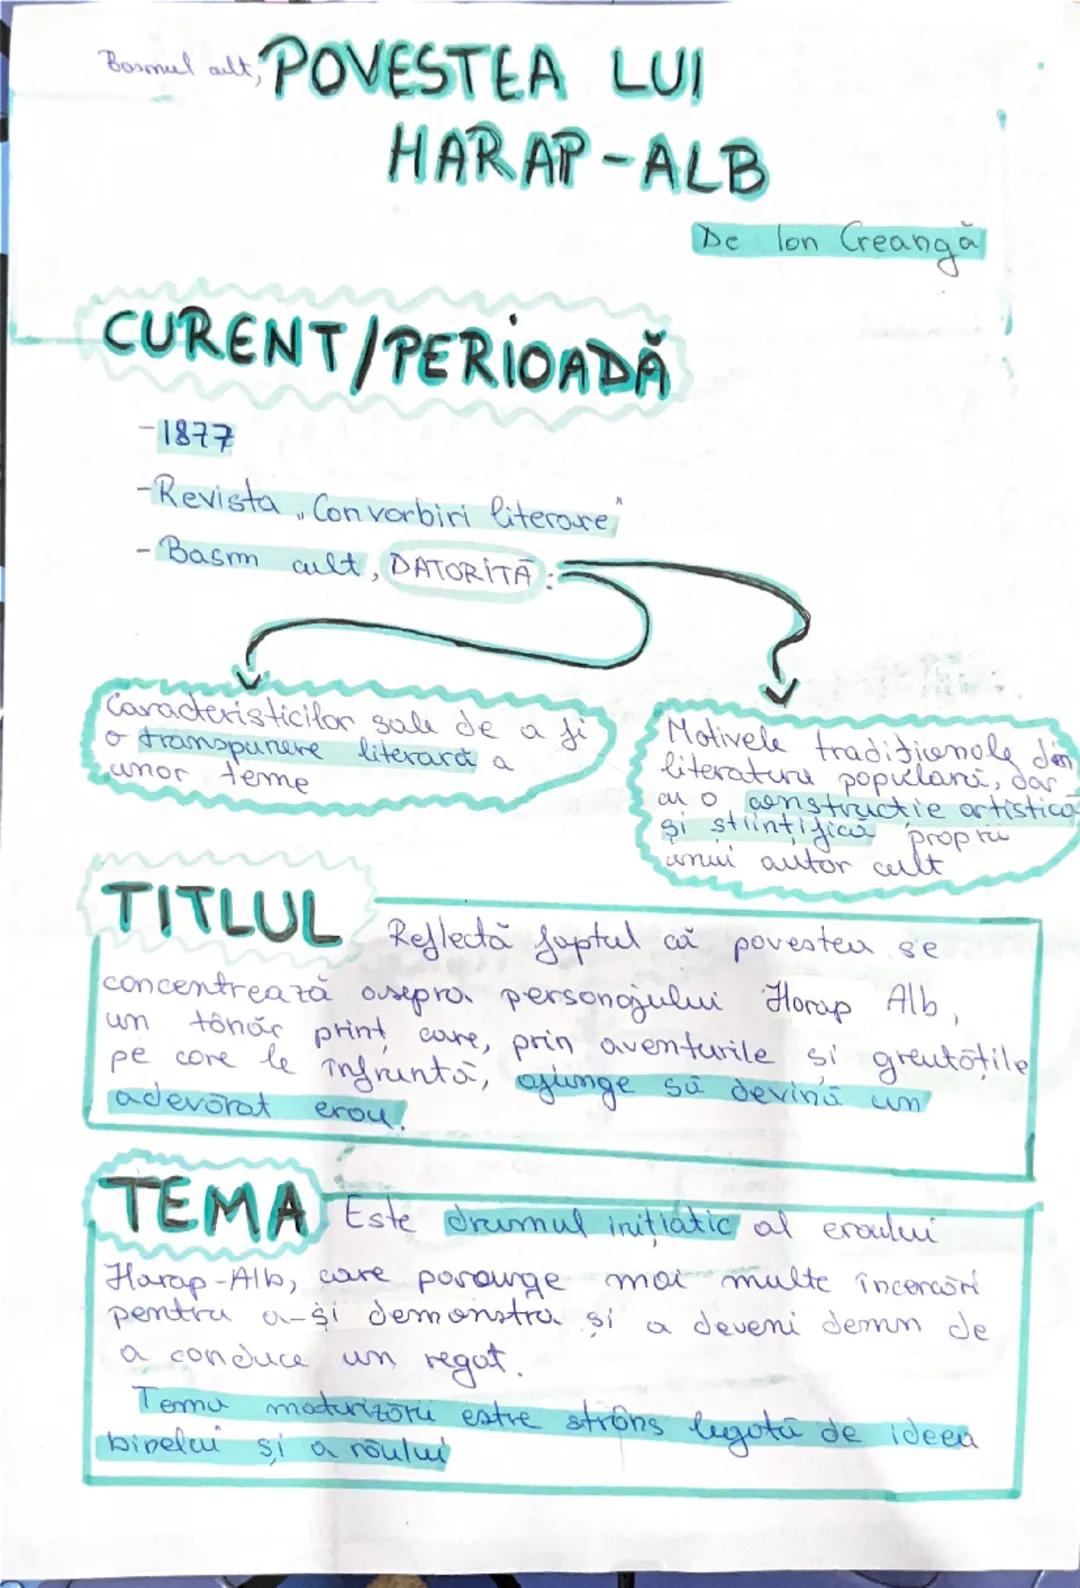 Basmul cult, POVESTEA LUI
HARAP-ALB
De Ion Creangă
CURENT/PERIOADĂ
-1877
-Revista „Convorbiri literare"
-Basm cult, DATORITĂ:
Caracteristicilor sale de a fi
o transpunere literară a
unor teme
Motivele tradiționale din
literatura populară, dar
cu o construcție artistică
și științifică proprii
unui autor cult
TITLUL Reflectă faptul că povestea se
concentrează asupra personajului Harap Alb,
un tânăr prinț care, prin aventurile și greutățile
pe care le înfruntă, ajunge să devină un
adevărat erou.
TEMA Este drumul inițiatic al eroului
Harap-Alb, care parcurge mai multe încercări
pentru a-și demonstra și a deveni demn de
a conduce un regat.
Tema maturizării estre strâns legată de ideea
binelui și a răului